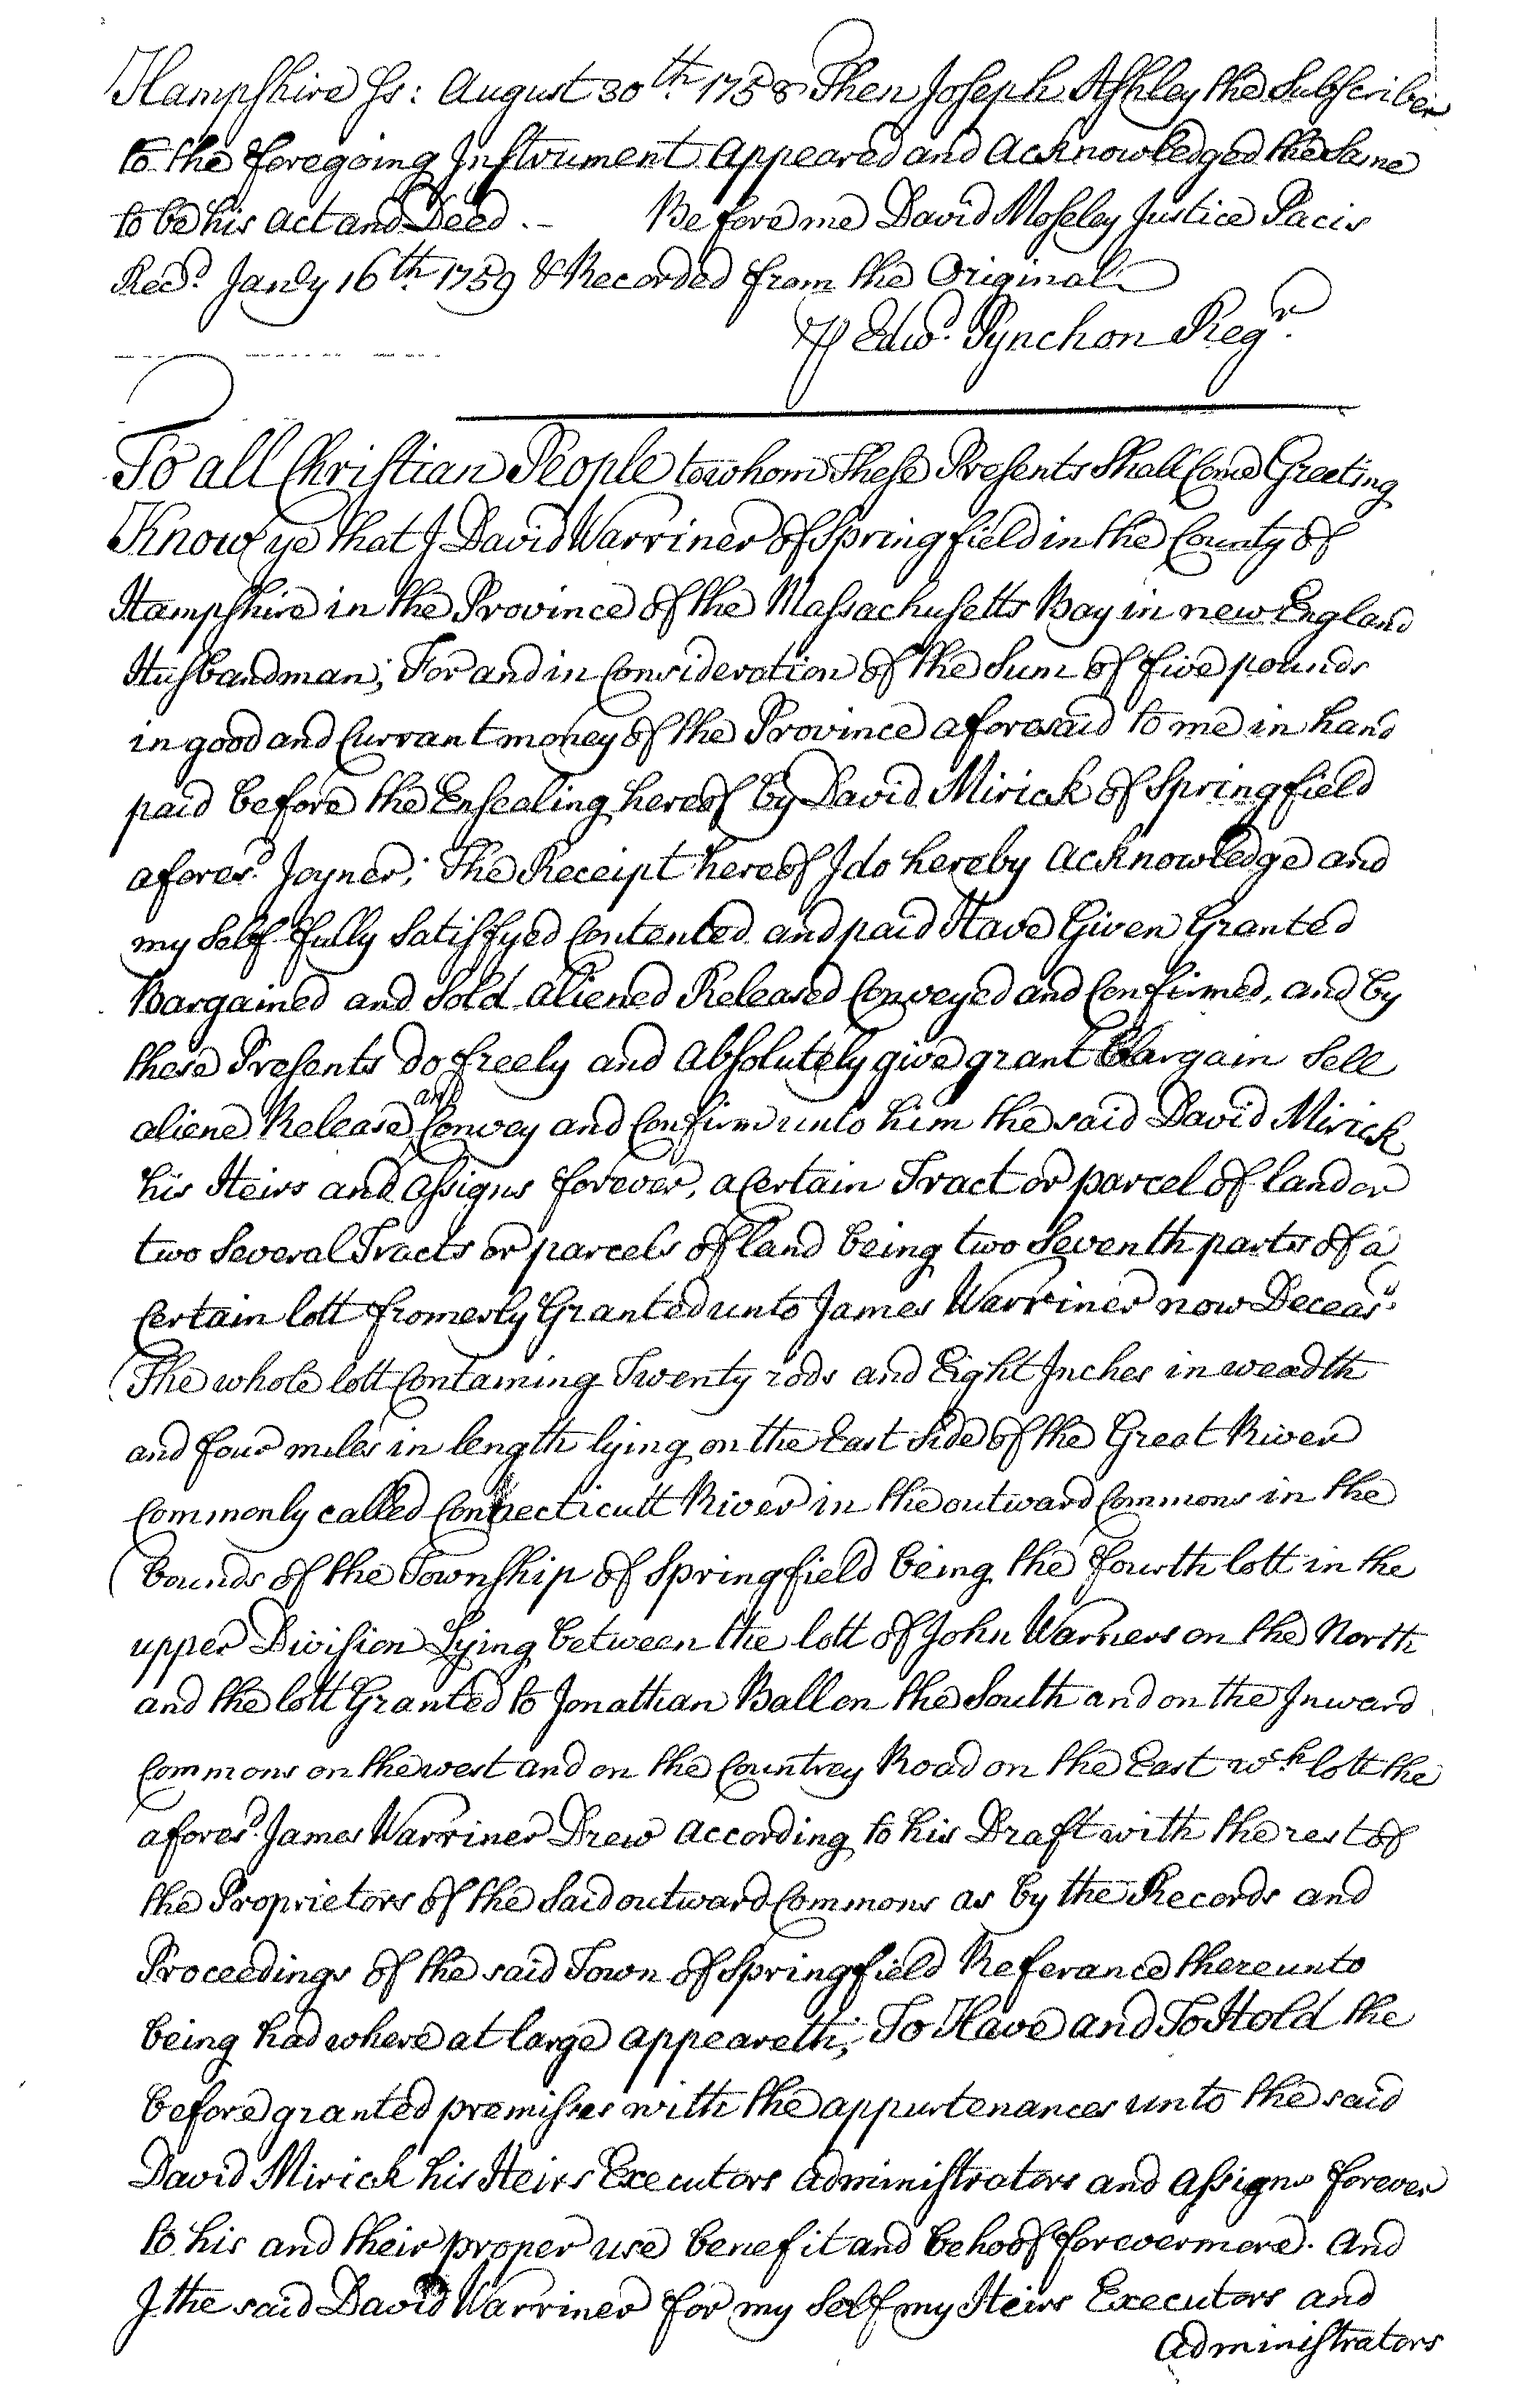 Hampshire Ss: August 30th. 1758 Then Joseph Ashley the Subscriber
to the foregoing Instrument Appeared and Acknowledged the Same
to be his Act and Deed.- Before me David Moseley Justice Pacis
Recd. Janry 16th. 1759 & Recorded from the Original
℘ Edwd. Pynchon Regr.
To all Christian People to whom These Presents Shall Come Greeting
Know ye that I David Warriner of Springfield in the County of
Hampshire in the Province of the Massachusetts Bay in new England
Husbandman; For and in Consideration of the Sum of five pounds
in good and Currant money of the Province aforesaid to me in hand
paid before the Ensealing hereof by David Mirick of Springfield
aforesd. Joyner; The Receipt hereof I do hereby Acknowledge and
my Self fully Satisfyed Contented and paid Have Given Granted
Bargained and Sold Aliened Released Conveyed and Confirmed, and by
these Presents do freely and Absolutely give grant Bargain Sell
aliene Release and Convey and Confirm unto him the said David Mirick
his Heirs and Assigns forever, a Certain Tract or parcel of land or
two Several Tracts or parcels of land being two Seventh parts of a
Certain lott fromerly Granted unto James Warriner now Deceasd.
(The whole lott Containing Twenty rods and Eight Inches in weadth
and four miles in length lying on the East Side of the Great River
Commonly called Connecticutt River in the outward Commons in the
(bounds of the Township of Springfield being the fourth lott in the
upper Division Lying between the lott of John Warners on the North
and the lott Granted to Jonathan Ball on the South and on the Inward
Commons on the west and on the Countrey Road on the East wch lott the
aforesd. James Warriner Drew According to his Draft with the rest of
the Proprietors of the Said outward Commons as by the Records and
Proceedings of the said Town of Springfield Referance thereunto
being had where at large appeareth; To Have and To Hold the
before granted premisses with the appurtenances unto the said
David Mirick his Heirs Executors Administrators and Assigns forever
to his and their proper use benefit and behoof forevermore. And
I the said David Warriner for my Self my Heirs Executors and
Administrators